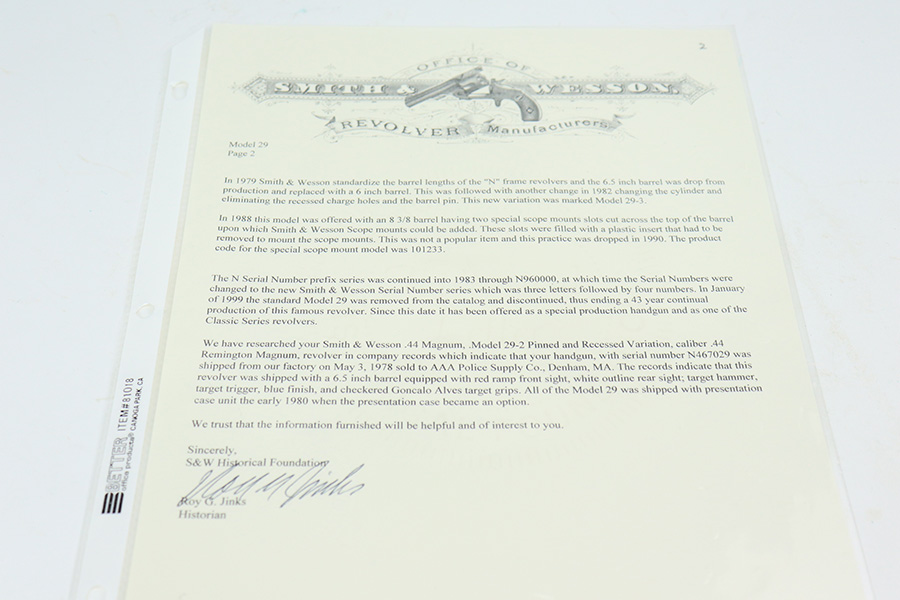 2
OFFICE OF
SMITH & WESSON,
REVOLVER Manufacturers
Model 29
Page 2
In 1979 Smith & Wesson standardize the barrel lengths of the "N" frame revolvers and the 6.5 inch barrel was drop from
production and replaced with a 6 inch barrel. This was followed with another change in 1982 changing the cylinder and
eliminating the recessed charge holes and the barrel pin. This new variation was marked Model 29-3.
In 1988 this model was offered with an 8 3/8 barrel having two special scope mounts slots cut across the top of the barrel
upon which Smith & Wesson Scope mounts could be added. These slots were filled with a plastic insert that had to be
removed to mount the scope mounts. This was not a popular item and this practice was dropped in 1990. The product
code for the special scope mount model was 101233.
The N Serial Number prefix series was continued into 1983 through N960000, at which time the Serial Numbers were
changed to the new Smith & Wesson Serial Number series which was three letters followed by four numbers. In January
of 1999 the standard Model 29 was removed from the catalog and discontinued, thus ending a 43 year continual
production of this famous revolver. Since this date it has been offered as a special production handgun and as one of the
Classic Series revolvers.
We have researched your Smith & Wesson .44 Magnum, .Model 29-2 Pinned and Recessed Variation, caliber .44
Remington Magnum, revolver in company records which indicate that your handgun, with serial number N467029 was
shipped from our factory on May 3, 1978 sold to AAA Police Supply Co., Denham, MA. The records indicate that this
revolver was shipped with a 6.5 inch barrel equipped with red ramp front sight, white outline rear sight; target hammer,
target trigger, blue finish, and checkered Goncalo Alves target grips. All of the Model 29 was shipped with presentation
case unit the early 1980 when the presentation case became an option.
We trust that the information furnished will be helpful and of interest to you.
Sincerely,
S&W Historical Foundation
Roy G. Jinks
Roy G. Jinks
Historian
BETTER
office products
ITEM# 81018
CANOGA PARK, CA